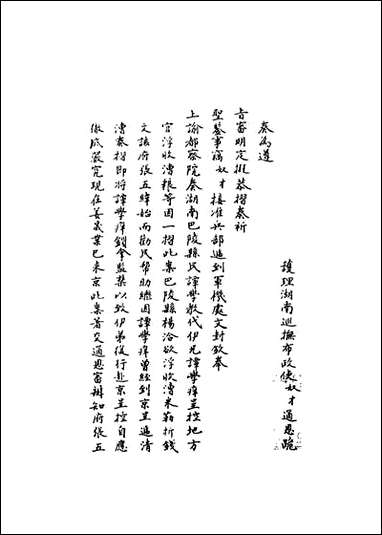 護理湖南巡撫布政使奴才通恩跪
奏為遵
旨審明定擬恭摺奏祈
聖鑒事竊奴才接准兵部遞到軍機處文封欽奉
上諭都察院奏湖南巴陵縣民譚學教代伊兄譚學庠呈控地方
官浮收漕糧等因一摺此案巴陵縣楊洽欲浮收漕米勒折錢
文該府張五緯始而勸民幫助繼因譚學庠曾經到京呈遞清
漕奏摺即將譚學庠鎖拏監禁以致伊弟復行赴京呈控自應
徹底嚴究現在姜晟業已来京此案著交通恩審辦知府張五